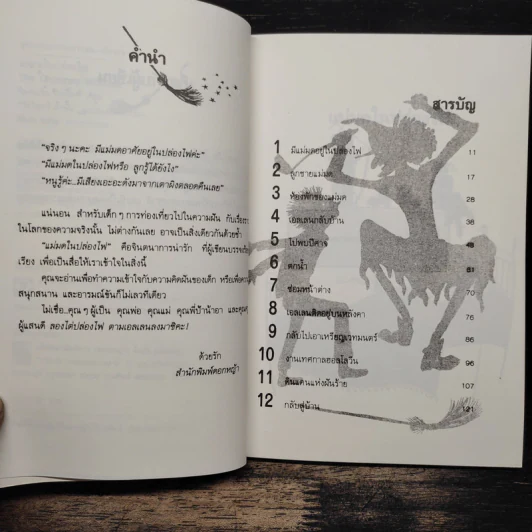 คำนำ
"จริงๆ นะคะ มีแม่มดอาศัยอยู่ในปล่องไฟค่ะ"
"มีแม่มดในปล่องไฟหรือ ลูกรู้ได้ยังไง"
"หนูรู้ค่ะ..มีเสียงเอะอะดังมาจากเตาผิงตลอดคืนเลย"
แน่นอน สำหรับเด็กๆ การท่องเที่ยวไปในความฝัน กับเรื่องรา
ในโลกของความจริงนั้น ไม่ต่างกันเลย อาจเป็นสิ่งเดียวกันด้วยซ้ำ
"แม่มดในปล่องไฟ" คือจินตนาการน่ารัก ที่ผู้เขียนบรรจง
เรียง เพื่อเป็นสื่อให้เราเข้าใจในสิ่งนี้
คุณจะอ่านเพื่อทำความเข้าใจกับความคิดฝันของเด็ก หรือเพื่อความ
สนุกสนาน และอารมณ์ขันก็ไม่เลวทีเดียว
ไม่เชื่อ...คุณๆ ผู้เป็น คุณพ่อ คุณแม่ คุณพี่ป้าน้าอา และคุณครู
ผู้แสนดี ลองไต่ปล่องไฟ ตามเอลเลนลงมาซิคะ!
ด้วยรัก
สำนักพิมพ์ดอกหญ้า
สารบัญ
1 มีแม่มดอยู่ในปล่องไฟ 11
2 ลูกชายแม่มด 17
3 ห้องพักของแม่มด 28
4 เอลเลนกลับบ้าน 36
5 ไปพบปีศาจ 48
6 ตกน้ำ 61
7 ซ่อมหน้าต่าง 70
8 เอลเลนติดอยู่บนหลังคา 76
9 กลับไปเอาเหรียญเวทมนตร์ 86
10 งานเทศกาลฮอลโลวีน 96
11 ดินแดนแห่งฝันร้าย 107
12 กลับสู่บ้าน 121